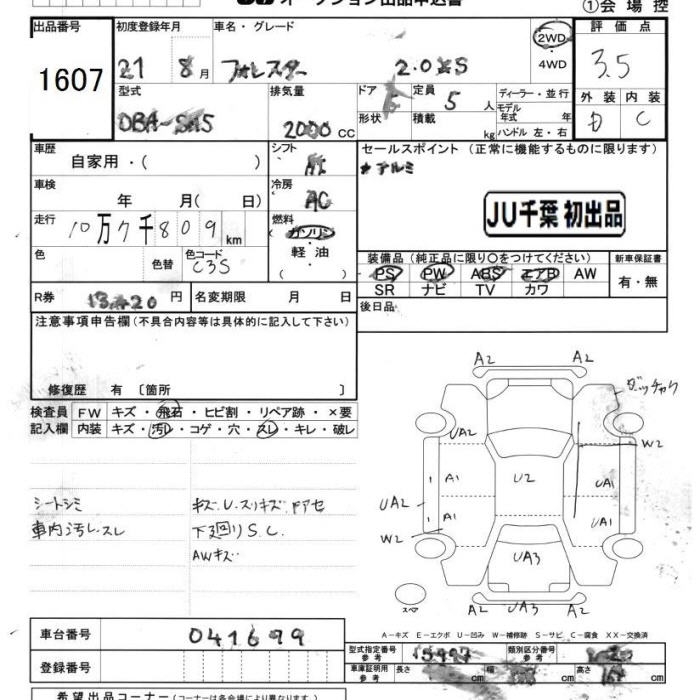 ①会場控
出品番号 初度登録年月 車名・グレード 評価点
1607 21 8月 フォレスター 2.0XS 2WD・4WD 3.5
型式 排気量 ドア 定員 5人 ディーラー・並行
形状 積載 kg モデル年式 年 ハンドル 左・右
2000 CC
外装 内装
D C
車歴 自家用・( ) シフト AT
セールスポイント (正常に機能するものに限ります)
アルミ
車検 年 月( 日) 冷房 AC
JU千葉 初出品
走行 10万7千809km 燃料 ガソリン・軽油・( )
色 色替 色コード C3S
装備品 (純正品に限り○をつけてください) 新車保証書
PS PW ABS エアB AW 有・無
SR ナビ TV カワ
R券 円 名変期限 月 日
後日品
注意事項申告欄 (不具合内容等は具体的に記入して下さい)
修復歴 有 〔箇所 〕
検査員 FW キズ・飛石・ヒビ割・リペア跡・×要
記入欄 内装 キズ・汚レ・コゲ・穴・スレ・キレ・破レ
シートシミ
車内汚レ・スレ
キズ.U.スリキズ.ドアセ
下廻りS.C.
AWキズ
A2 A2
UA2 W2
A1 U2 UA1
UA2
A1 UA1
W2
UA3
スペア A2 UA3 A2
A−キズ E−エクボ U−凹み W−補修跡 S−サビ C−腐食 XX−交換済
車台番号 041699
型式指定番号 参考 類別区分番号 参考
登録番号
車庫証明用 参考 長さ cm 幅 cm 高さ cm
希望出品コーナー (コーナーは各会場により異なります。)